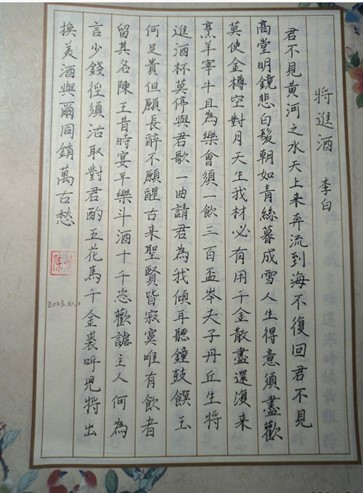 將進酒 李白
君不見黃河之水天上来奔流到海不復回君不見
高堂明鏡悲白髮朝如青絲暮成雪人生得意須盡歡
莫使金樽空對月天生我材必有用千金散盡還復来
烹羊宰牛且為樂會須一飲三百盃岑夫子丹丘生將
進酒杯莫停與君歌一曲請君為我傾耳聽鐘鼓饌玉
何足貴但願長醉不願醒古来聖賢皆寂寞唯有飲者
留其名陳王昔時宴平樂斗酒十千恣歡謔主人何為
言少錢徑須沽取對君酌五花馬千金裘呼兒將出
換美酒與爾同銷萬古愁